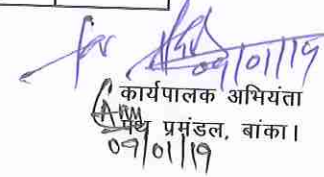 for
09/01/19
कार्यपालक अभियंता
पथ प्रमंडल, बांका।
09/01/19